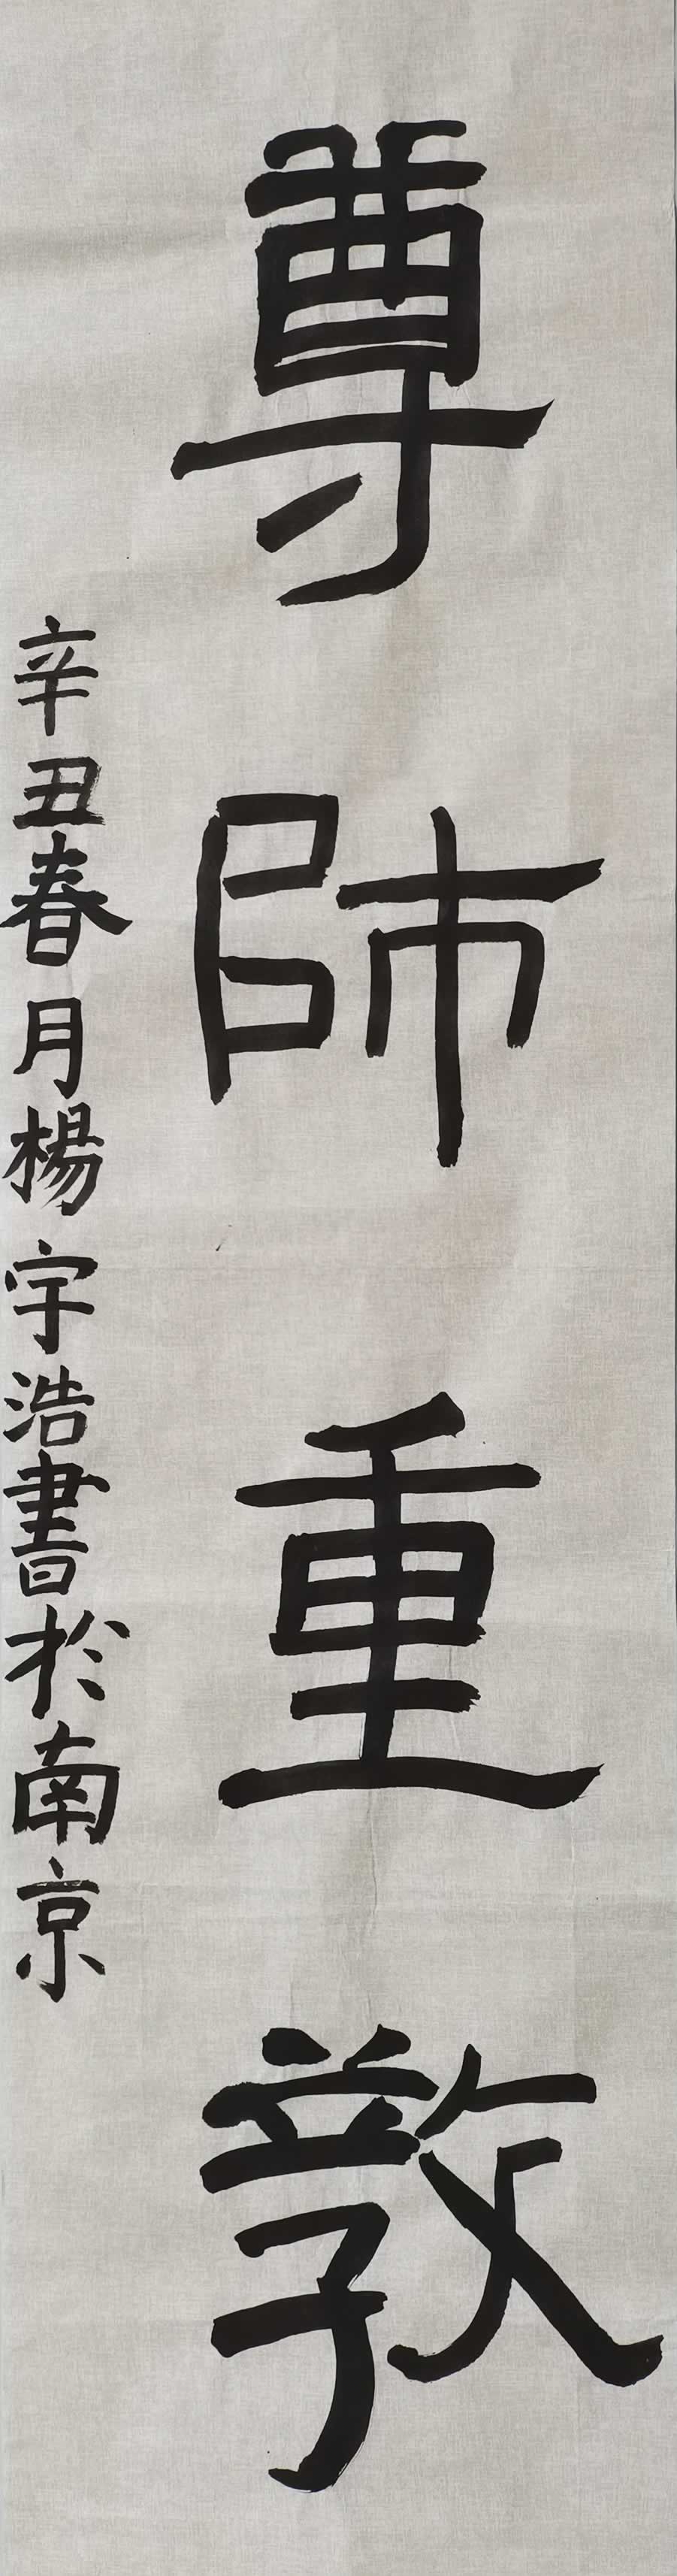 尊師重教
辛丑春月楊宇浩書於南京